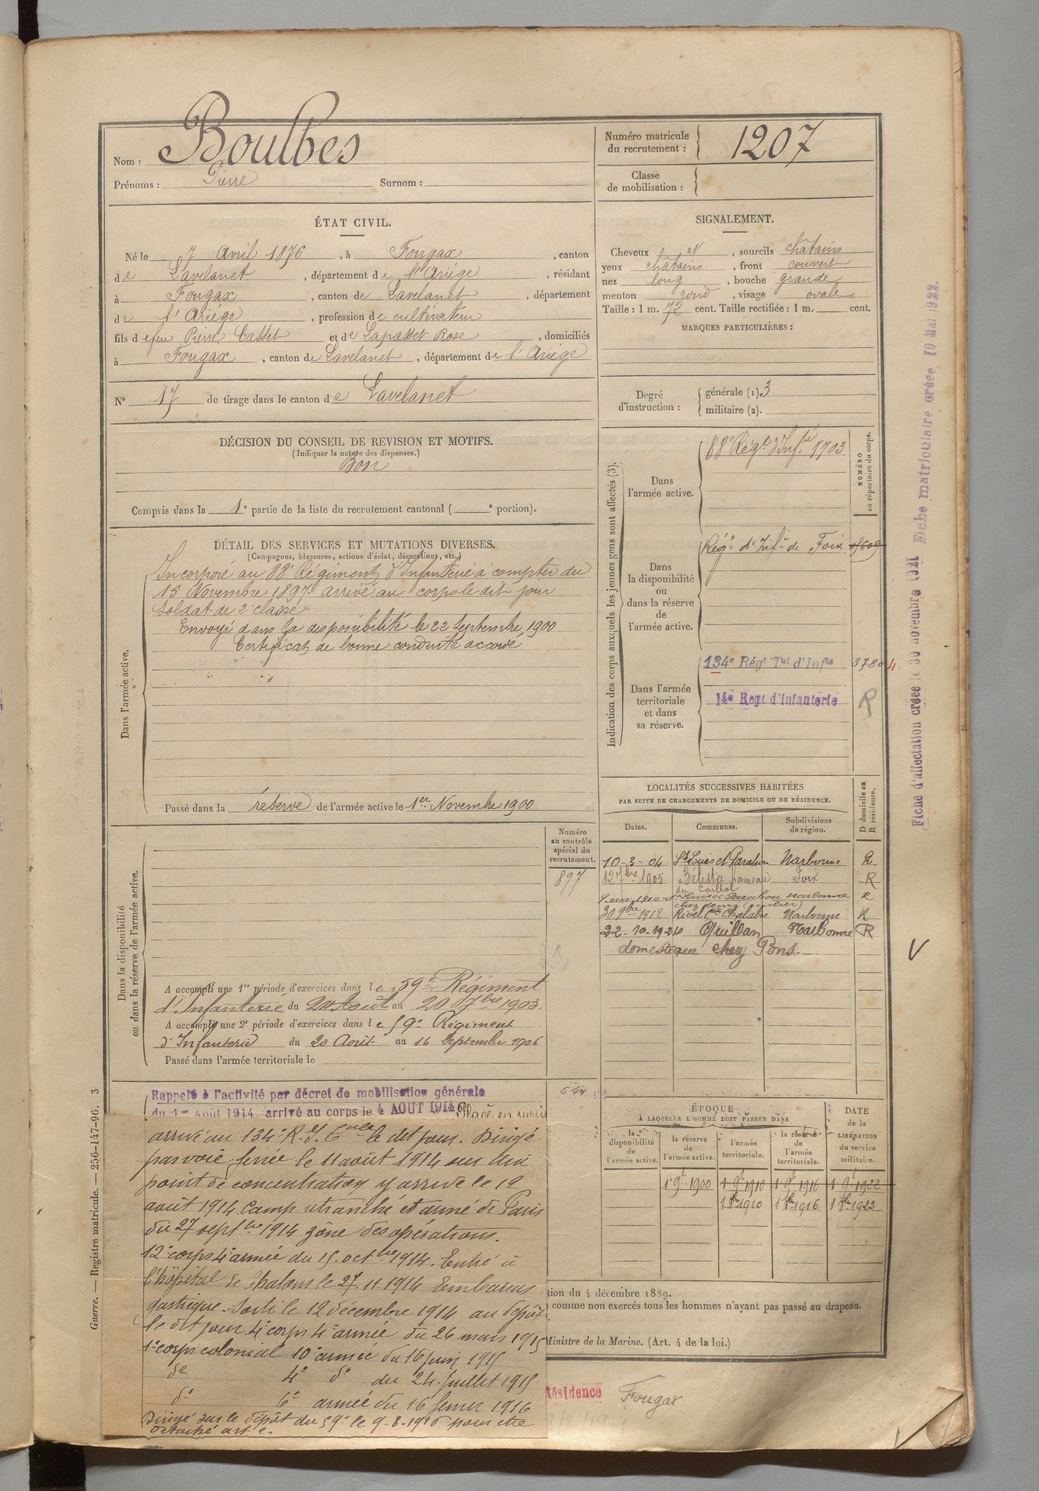 Nom : Boulbes
Prénoms : Pierre Surnom :
Numéro matricule du recrutement : 1207
Classe de mobilisation :
ÉTAT CIVIL.
Né le 7 Avril 1876, à Fougax, canton
de Lavelanet, département de l'Ariége, résidant
à Fougax, canton de Lavelanet, département
de l'Ariége, profession de cultivateur
fils d efeu Pierre Casset et de Lapasset Rose, domiciliés
à Fougax, canton de Lavelanet, département de l'Ariége
N° 17 de tirage dans le canton de Lavelanet
SIGNALEMENT.
Cheveux N, sourcils châtains
yeux châtains, front couvert
nez long, bouche grande
menton rond, visage ovale
Taille : 1 m. 72 cent. Taille rectifiée : 1 m. cent.
MARQUES PARTICULIÈRES :
Degré d'instruction :
générale (1) 3
militaire (2).
DÉCISION DU CONSEIL DE REVISION ET MOTIFS.
(Indiquer la nature des dispenses.)
Bon
Compris dans la 1e partie de la liste du recrutement cantonal ( e portion).
DÉTAIL DES SERVICES ET MUTATIONS DIVERSES.
(Campagnes, blessures, actions d'éclat, décorations, etc.)
Dans l'armée active.
Incorporé au 88e Régiment d'Infanterie à compter du
15 Novembre 1897 arrivé au corps le dit jour
soldat de 2e classe
Envoyé dans la disponibilité le 22 Septembre 1900
Certificat de bonne conduite accordé
Passé dans la réserve de l'armée active le 1er Novembre 1900
Indication des corps auxquels les jeunes gens sont affectés (3).
NUMÉRO au répertoire du corps.
Dans l'armée active.
88e Régt d'Infie
Dans la disponibilité ou dans la réserve de l'armée active.
Régt d'Infie de Foix
Dans l'armée territoriale et dans sa réserve.
134e Régt Tal d'Infie 3780
14e Regt d'Infanterie R
LOCALITÉS SUCCESSIVES HABITÉES
PAR SUITE DE CHANGEMENTS DE DOMICILE OU DE RÉSIDENCE.
Dates. Communes. Subdivisions de région. D domicile ou R résidence.
10-3-04 St Louis et Parahou Narbonne R
12 7bre 1905 Bélesta hameau Foix R
du Caillol
30 9bre 1912 Rivel Narbonne R
22-10-1920 Quillan Narbonne R
domestique chez Pons
Numéro au contrôle spécial du recrutement.
897
Dans la disponibilité ou dans la réserve de l'armée active.
A accompli une 1re période d'exercices dans le 59e Régiment
d'Infanterie du 24 Août au 20 7bre 1903.
A accompli une 2e période d'exercices dans le 59e Régiment
d'Infanterie du 20 Août au 16 Septembre 1906
Passé dans l'armée territoriale le
Rappelé à l'activité par décret de mobilisation générale
du 1er août 1914, arrivé au corps le 4 AOUT 1914
arrivé au 134e R. le dit jour. Dirigé
par voie ferrée le 11 août 1914 sur un
point de concentration y arrive le 12
août 1914 camp retranché et armé de Paris
du 27 septbre 1914 zône des opérations.
12e corps 4e armée du 15 octbre 1914. Entré à
l'hôpital de Chalons le 27.11.1914 Embarras
gastrique. Sorti le 12 décembre 1914 au dépôt
le dit jour 4e corps 4e armée du 26 mars 1915
1er corps colonial 10e armée du 16 juin 1915
do 4e do du 24 Juillet 1915
do 6e armée du 16 février 1916
Dirigé sur le dépôt du 59e le 9.8.1916 pour être
ÉPOQUE
À LAQUELLE L'HOMME DOIT PASSER DANS
la disponibilité de l'armée active. la réserve de l'armée active. l'armée territoriale. la réserve de l'armée territoriale.
DATE de la LIBÉRATION du service militaire.
1er 9bre 1900 1 9bre 1910 1 9bre 1916 1 9bre 1922
1 8bre 1910 1 8bre 1916 1 8bre 1922
tion du 4 décembre 1889.
comme non exercés tous les hommes n'ayant pas passé au drapeau.
Ministre de la Marine. (Art. 4 de la loi.)
Résidence Fougax
Guerre. — Registre matricule. — 256-147-96. 3
Fiche d'affectation créée le 30 novembre 1921 Fiche matriculaire créée 10 Mai 1922.